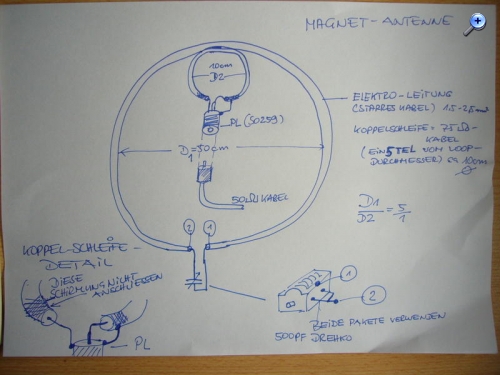 MAGNET-ANTENNE
10cm
D2
PL (SO259)
D1=50cm
50Ω KABEL
2
1
ELEKTRO-LEITUNG
(STARRES KABEL) 1.5-2.5
KOPPELSCHLEIFE = 75Ω-
KABEL
(EIN5TEL VOM LOOP-
DURCHMESSER) ca 10cm
D1
D2
=
5
1
KOPPEL-SCHLEIFE-
DETAIL
DIESE
SCHIRMUNG NICHT
ANSCHLIESSEN
PL
1
2
BEIDE PAKETE VERWENDEN
500PF DREHKO